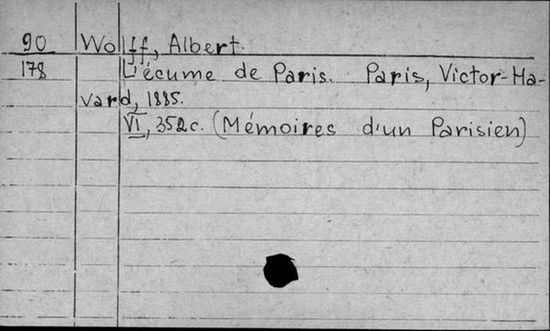 90 Wolff, Albert.
178 L'écume de Paris. Paris, Victor-Ha-
vard, 1885.
VI, 352c. (Mémoires d'un Parisien)